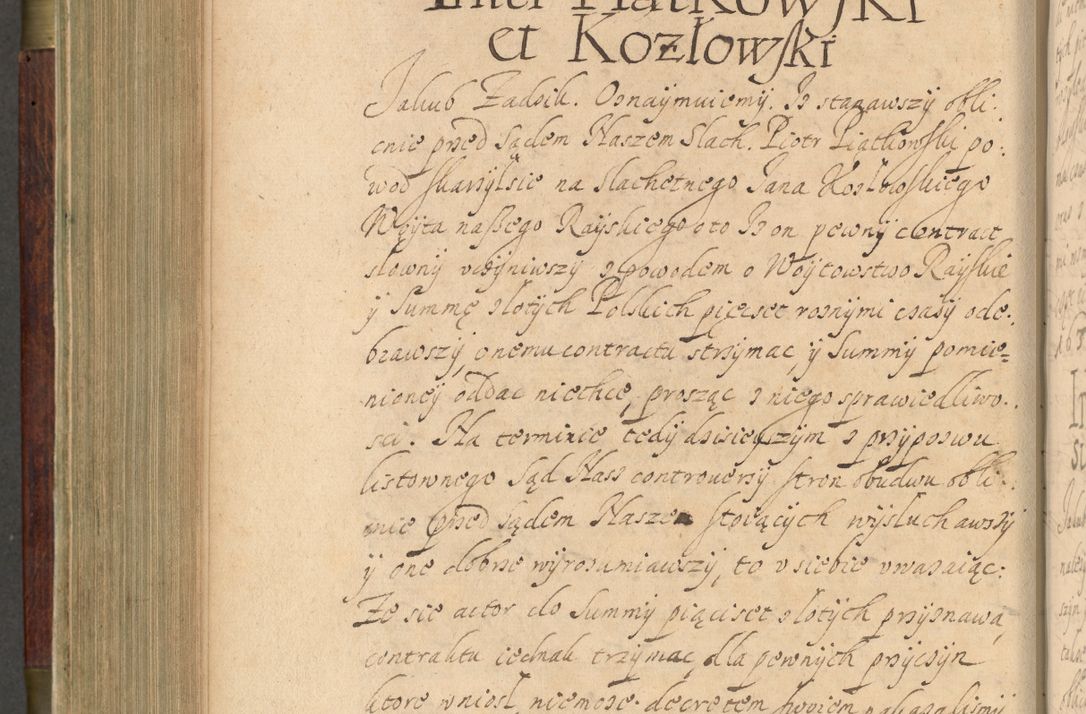 Inter Piatkowski
et Kozłowski
Jakub Zadzik. Oznaymuiemy. Iz stanawszy obli:
cnie przed sądem Naszem Slach. Piotr Piątkowski po:
wod skarzył sie na slachetnego Jana Kozłowskiego
Woyta naszego Rayskiego o to Iz on pewny contract
słowny vczyniwszy z powodem o Woytowstwo Rayskie
y Summę złotych Polskich pięcset roznymi czasy ode:
brawszy, onemu contractu strzymac, y Summy pomie=
nioney oddac niechce, prosząc z niego sprawiedliwo:
sci. Na terminie tedy dzisieyszym z przypozwu
listownego Sąd Nasz controuersy stron obudwu obli:
cnie przed sądem Naszem stoiących wysłuchawszy
y one dobrze wyrozumiawszy, to v siebie vwazaiąc:
Ze sie actor do Summy piąciset złotych przyznawa,
contraktu iednak trzymac dla pewnych przyczyn
ktore wniosł niemoze. decretem swoiem nakazalismy